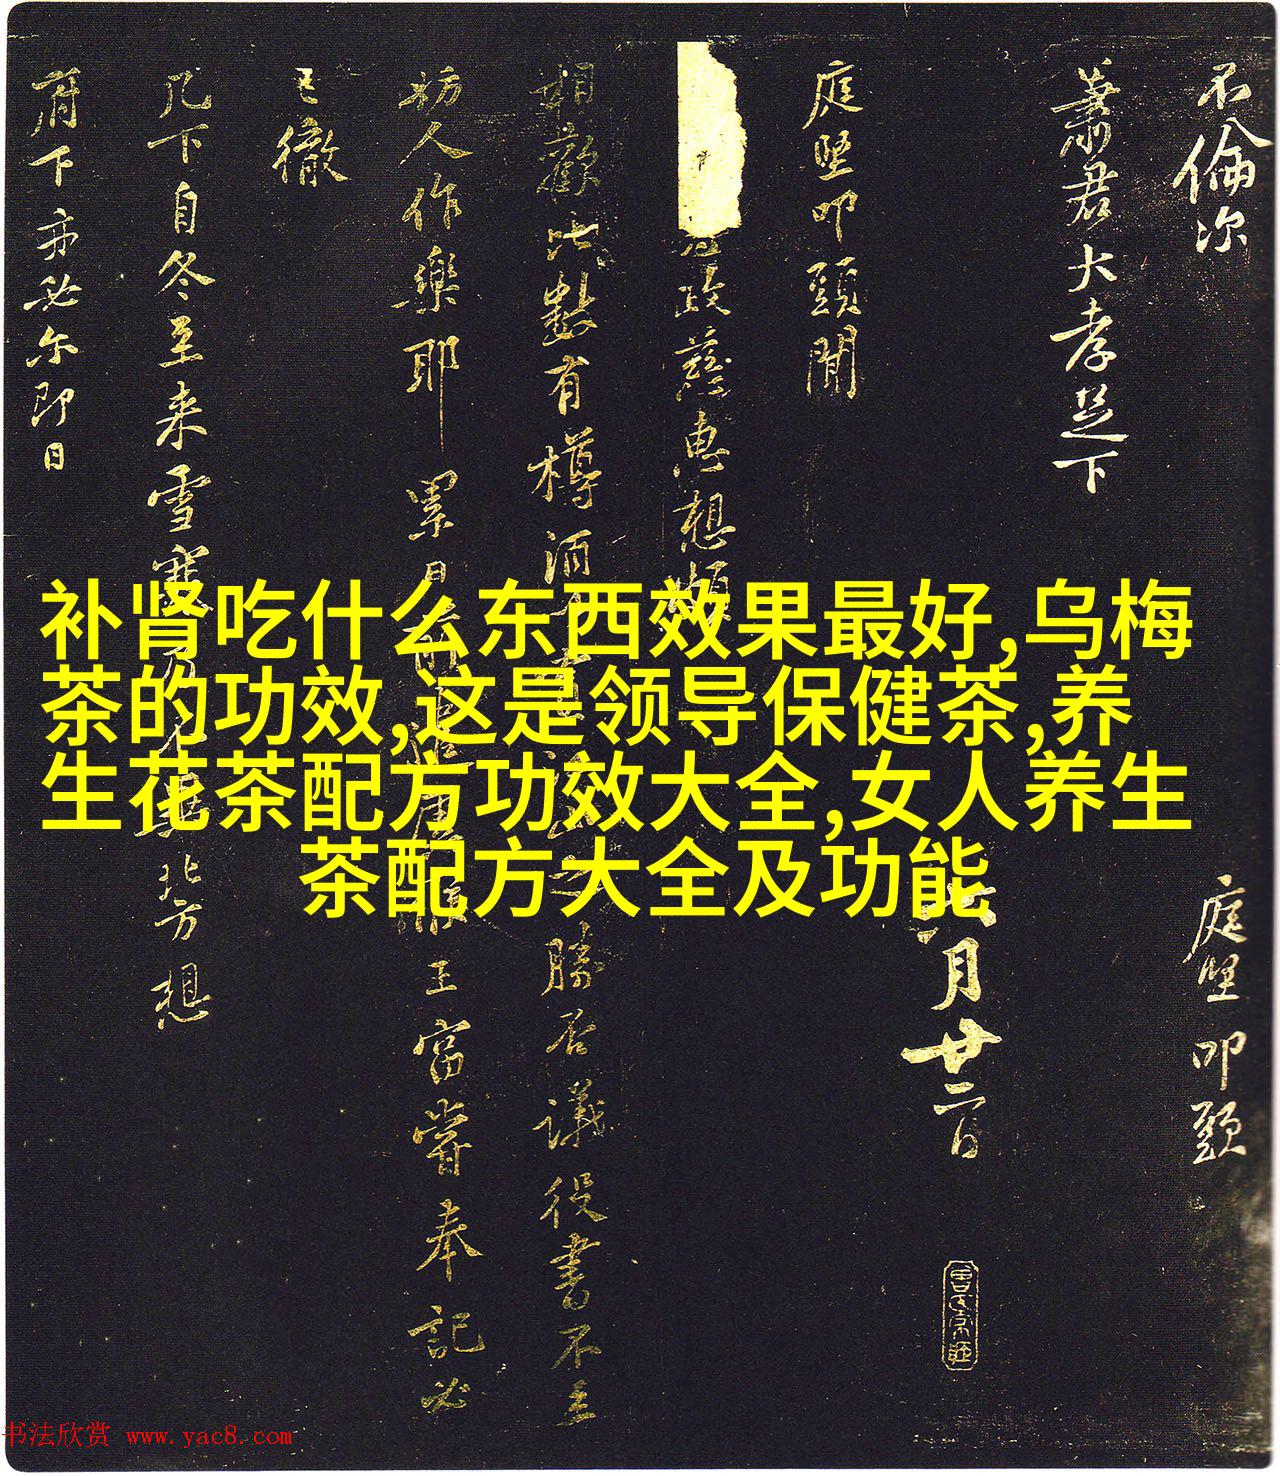 不倫次
庭堅叩頭
蕭君大孝足下
六月廿二日
庭堅叩頭聞
政慈惠想
相歡比數有樽酒
勝否議役書不主
妨人作樂耶累日
王富嘗奉記必
已徹
几下自冬至来雪寒
北方想
府下亦必尔即日
补肾吃什么东西效果最好,乌梅
茶的功效,这是领导保健茶,养
生花茶配方功效大全,女人养生
茶配方大全及功能
书法欣赏 www.yac8.com